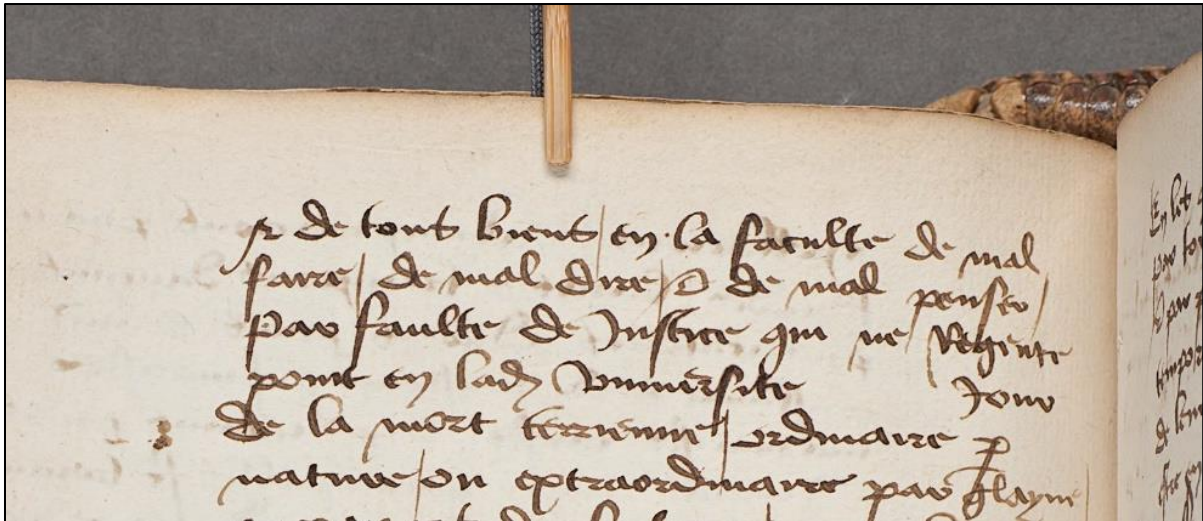 & de tous biens / en la faculte de mal
faire / de mal dire / & de mal penser /
Par faulte de Justice qui ne Regente
point en lad universite Jour
de la mort terrienne / ordinaire p
nature / ou extraordinaire par glayve